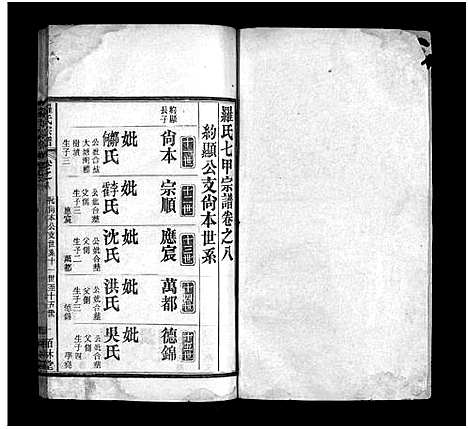 羅氏七甲宗譜卷之八
約顯公支尚本世系
十一世
約顯
長子
尚本
妣
氏
公妣合墓
生子三
十二世
宗順
妣
氏
公妣合墓
父側
生子三
應宸
十三世
應宸
妣
沈氏
公妣合墓
父側
生子二
萬都
十四世
萬都
妣
洪氏
公妣合墓
父側
生子三
德錦
十五世
德錦
妣
吳氏
公妣合墓
父側
生子四
羅氏宗譜
尚本公支世系十一世至十五世